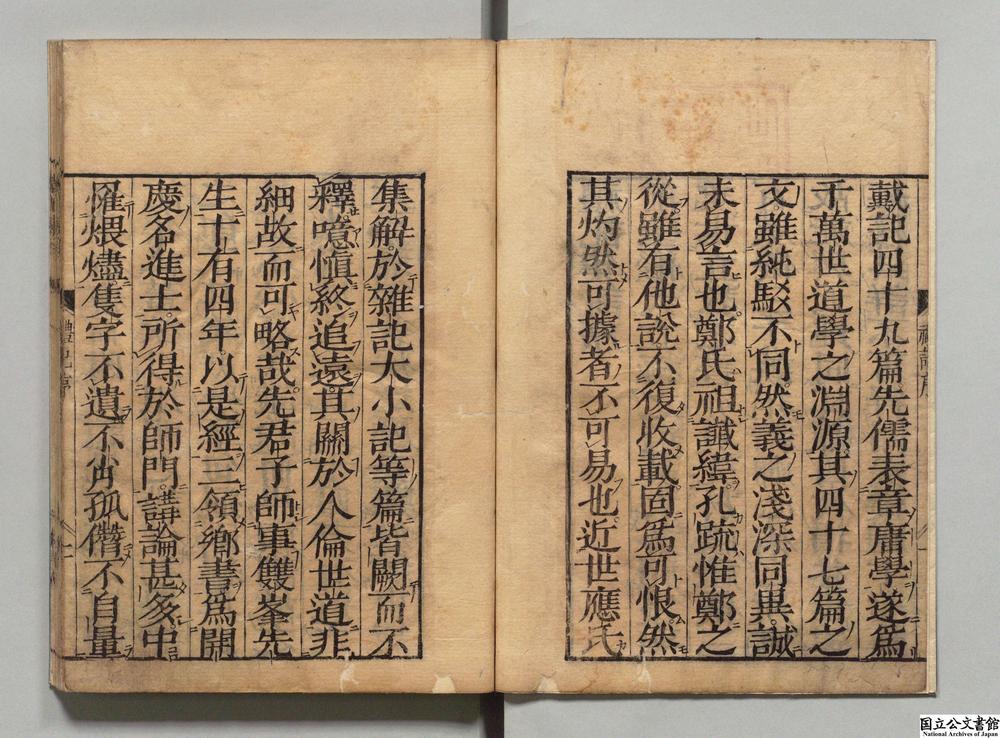 戴記四十九篇先儒表章庸學遂爲
千萬世道學之淵源其四十七篇之
文雖純駁不同然義之淺深同異誠
未易言也鄭氏祖讖緯孔䟽惟鄭之
從雖有他說不復收載固爲可恨然
其灼然可據者不可易也近世應氏
集解於雜記大小記等篇皆闕而不
釋噫愼終追遠其關於人倫世道非
細故而可略哉先君子師事雙峯先
生十有四年以是經三領鄉書爲開
慶名進士所得於師門講論甚多中
罹煨燼隻字不遺不肖孤僭不自量
国立公文書館
National Archives of Japan